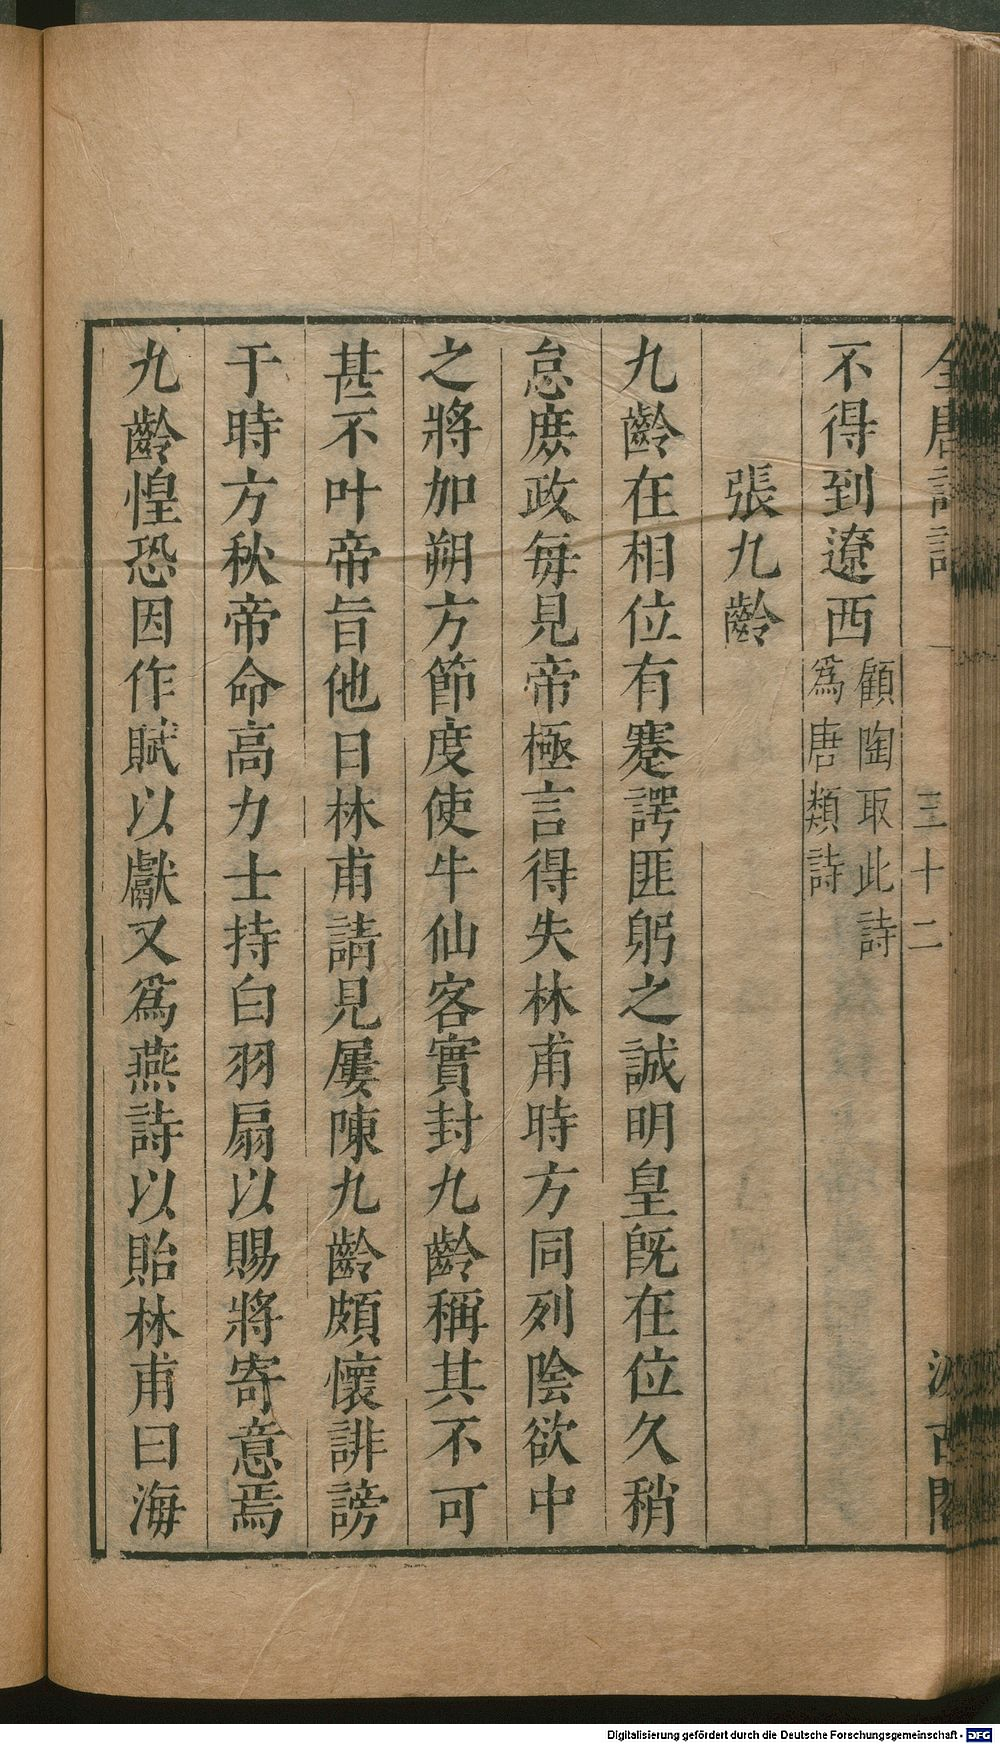 全唐詩話 三十二 汲古閣
不得到遼西顧陶取此詩
爲唐類詩
張九齡
九齡在相位有蹇諤匪躬之誠明皇旣在位久稍
怠庶政每見帝極言得失林甫時方同列陰欲中
之將加朔方節度使牛仙客實封九齡稱其不可
甚不叶帝旨他日林甫請見屢陳九齡頗懷誹謗
于時方秋帝命高力士持白羽扇以賜將寄意焉
九齡惶恐因作賦以獻又爲燕詩以貽林甫曰海
Digitalisierung gefördert durch die Deutsche Forschungsgemeinschaft - DFG